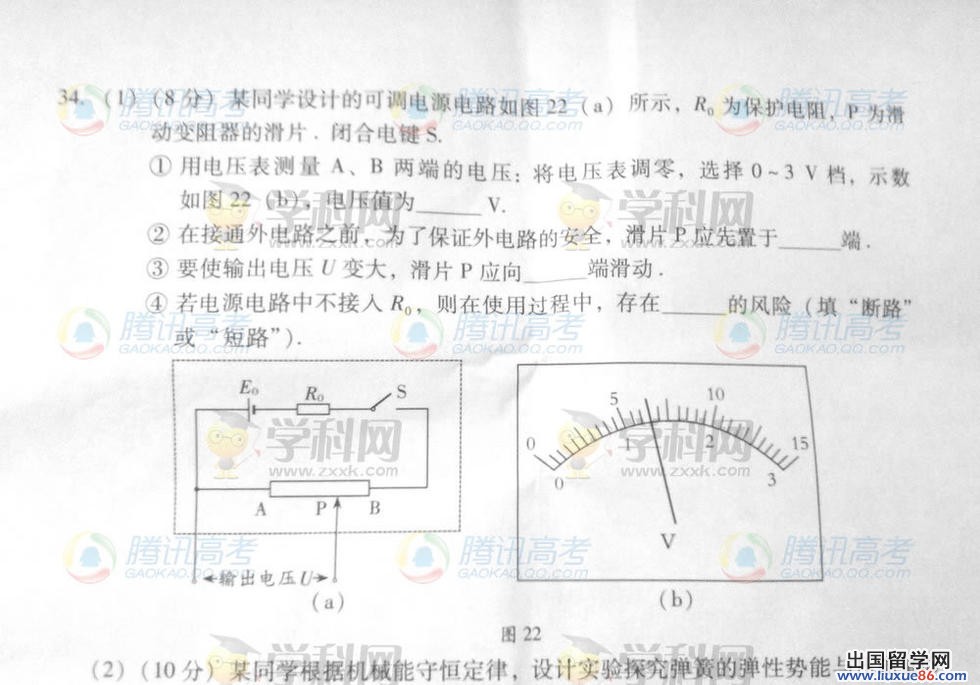 34. (1) (8 分) 某同学设计的可调电源电路如图 22 (a) 所示, R₀ 为保护电阻, P 为滑
动变阻器的滑片. 闭合电键 S.
① 用电压表测量 A、B 两端的电压: 将电压表调零, 选择 0~3 V 档, 示数
如图 22 (b), 电压值为______V.
② 在接通外电路之前, 为了保证外电路的安全, 滑片 P 应先置于______端.
③ 要使输出电压 U 变大, 滑片 P 应向______端滑动.
④ 若电源电路中不接入 R₀, 则在使用过程中, 存在______的风险 (填 “断路”
或 “短路”).
E₀
R₀
S
A
P
B
输出电压U
(a)
0
5
10
15
0
1
2
3
V
(b)
图 22
(2) (10 分) 某同学根据机械能守恒定律, 设计实验探究弹簧的弹性势能与
腾讯高考
GAOKAO.QQ.COM
学科网
www.zxxk.com
出国留学网
www.liuxue86.com